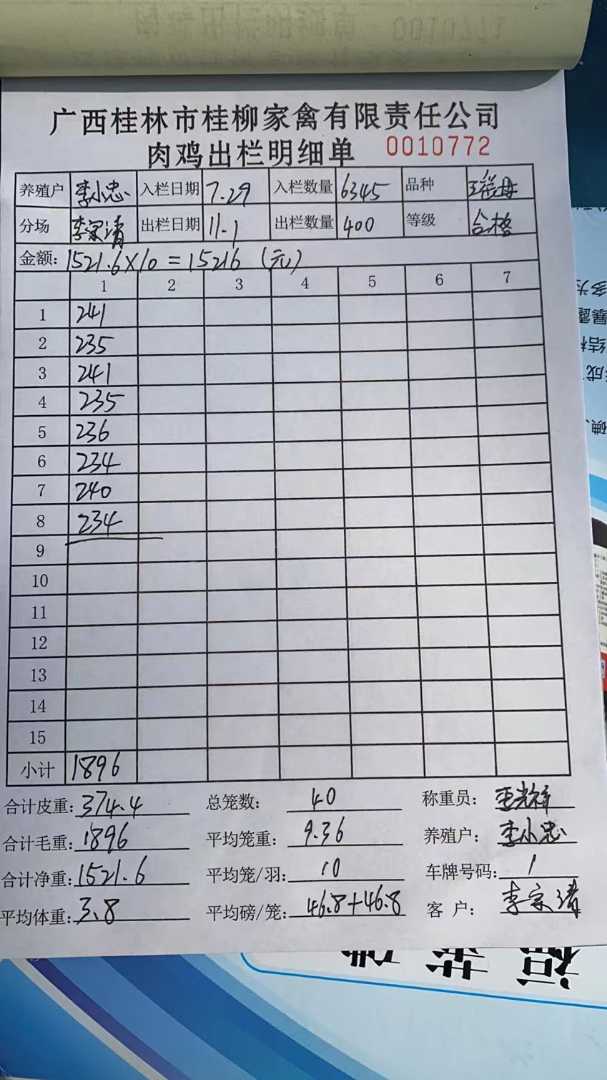 广西桂林市桂柳家禽有限责任公司
肉鸡出栏明细单 0010772
养殖户 李小忠 入栏日期 7.29 入栏数量 6345 品种
分场 李宗清 出栏日期 11.1 出栏数量 400 等级 合格
金额: 1521.6×10=15216 (元)
1 2 3 4 5 6 7
1 241
2 235
3 241
4 235
5 236
6 234
7 240
8 234
9
10
11
12
13
14
15
小计 1896
合计皮重: 374.4 总笼数: 40 称重员:
合计毛重: 1896 平均笼重: 9.36 养殖户: 李小忠
合计净重: 1521.6 平均笼/羽: 10 车牌号码: 1
平均体重: 3.8 平均磅/笼: 46.8+46.8 客 户: 李宗清